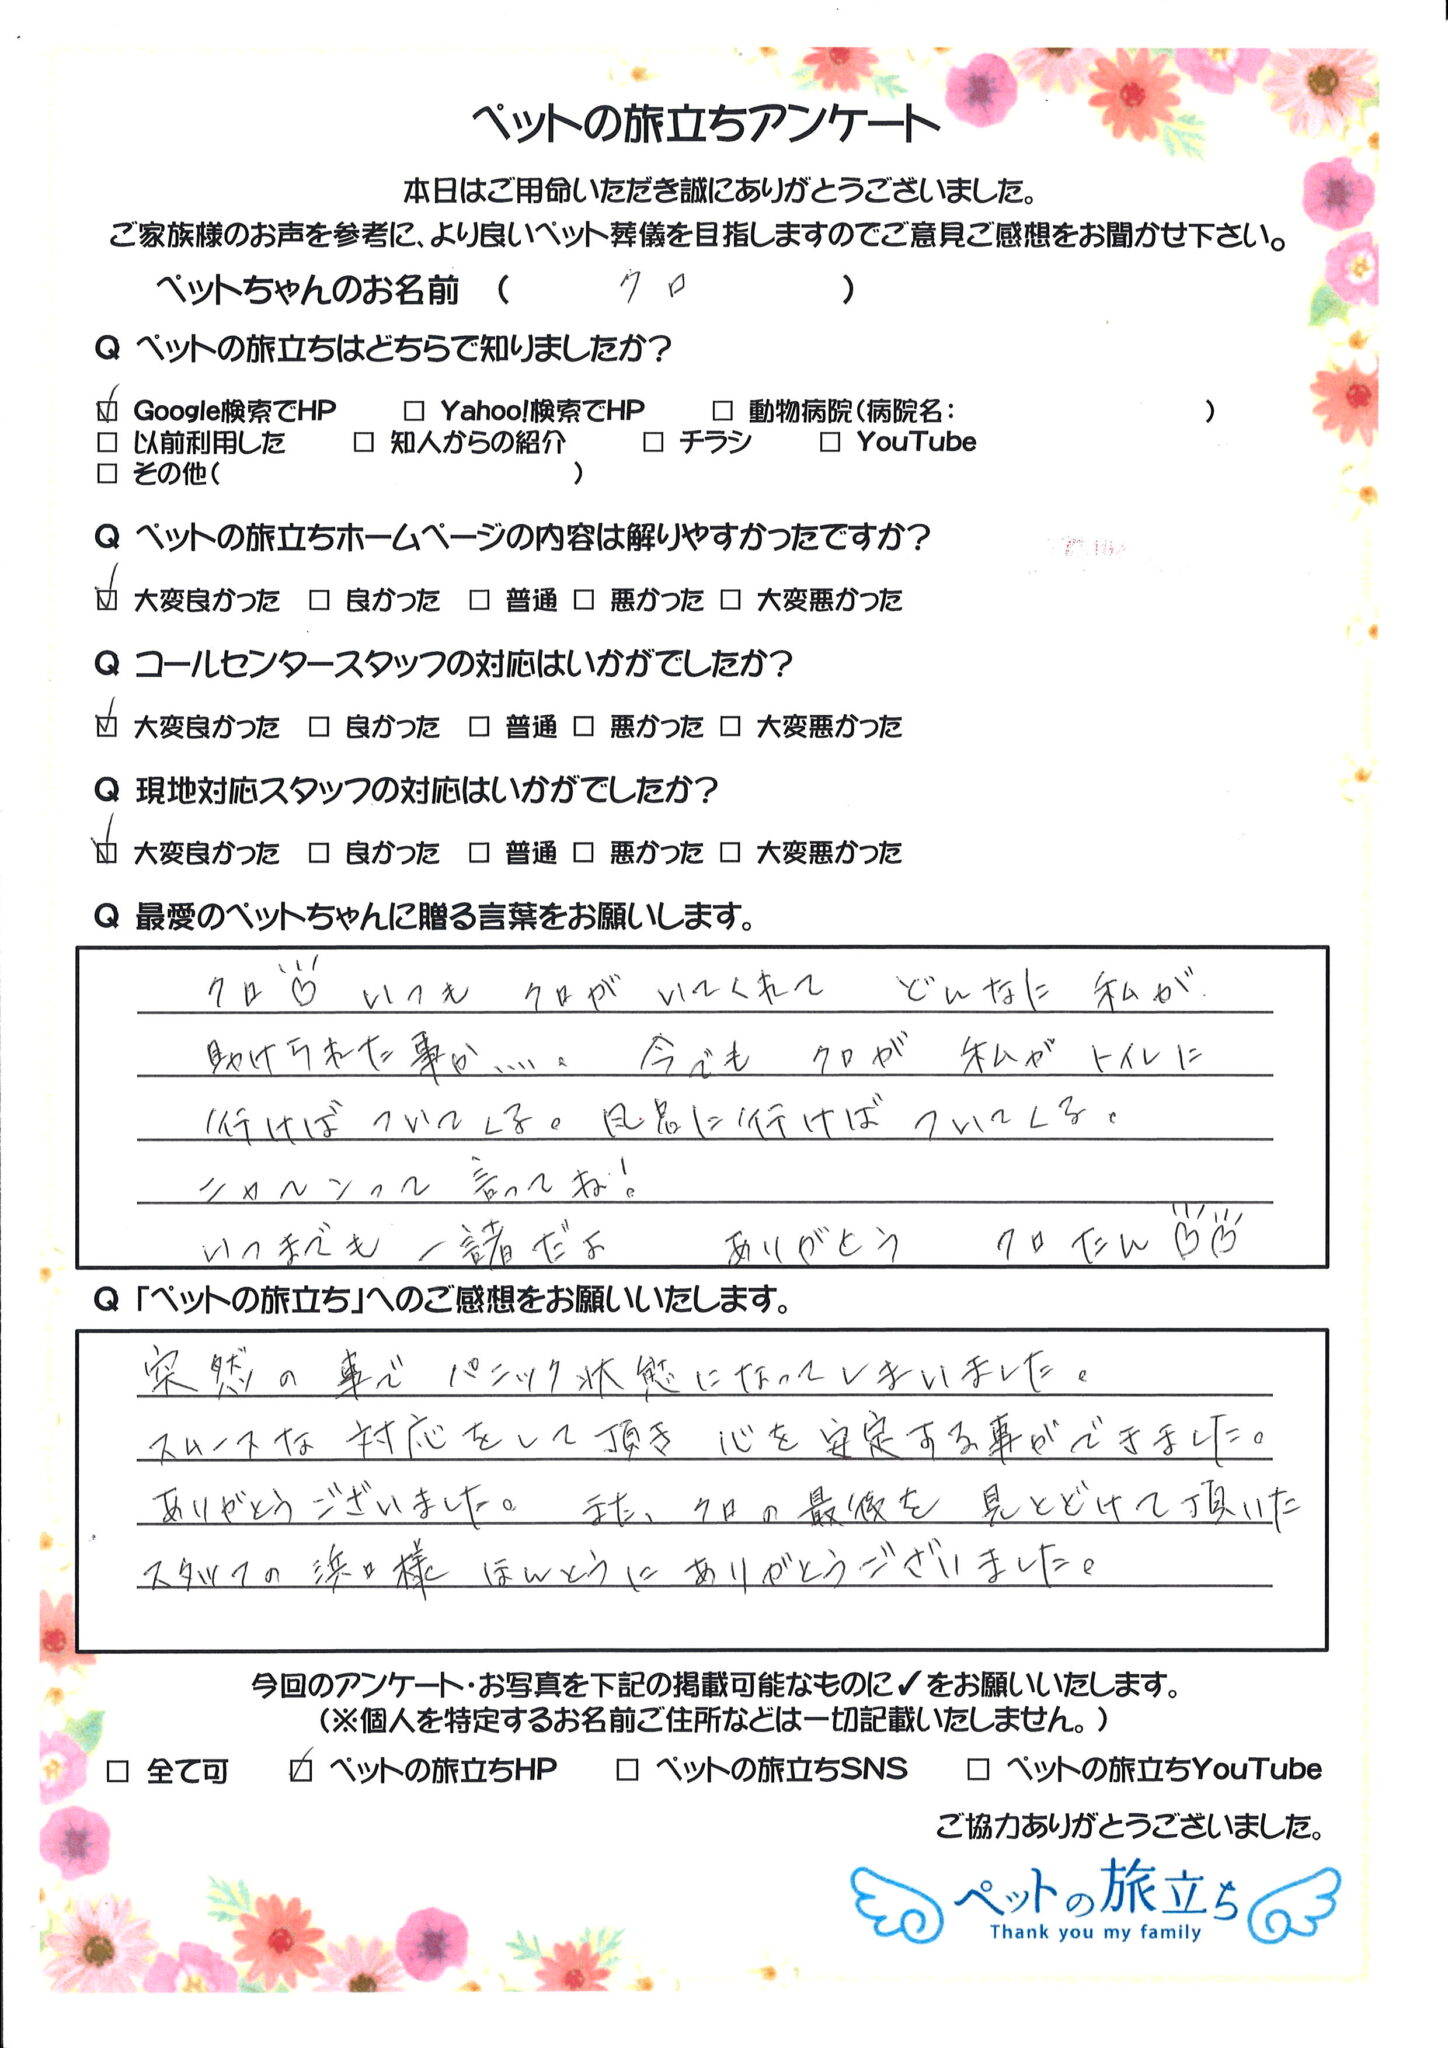 ペットの旅立ちアンケート
本日はご用命いただき誠にありがとうございました。
ご家族様のお声を参考に、より良いペット葬儀を目指しますのでご意見ご感想をお聞かせ下さい。
ペットちゃんのお名前 ( クロ )
Q ペットの旅立ちはどちらで知りましたか?
☑ Google検索でHP □ Yahoo!検索でHP □ 動物病院(病院名: )
□ 以前利用した □ 知人からの紹介 □ チラシ □ YouTube
□ その他( )
Q ペットの旅立ちホームページの内容は解りやすかったですか?
☑ 大変良かった □ 良かった □ 普通 □ 悪かった □ 大変悪かった
Q コールセンタースタッフの対応はいかがでしたか?
☑ 大変良かった □ 良かった □ 普通 □ 悪かった □ 大変悪かった
Q 現地対応スタッフの対応はいかがでしたか?
☑ 大変良かった □ 良かった □ 普通 □ 悪かった □ 大変悪かった
Q 最愛のペットちゃんに贈る言葉をお願いします。
クロ♡ いつも クロが いてくれて どんなに 私が
助けられた事か……。 今でも クロが 私が トイレに
行けば ついてくる。風呂に行けば ついてくる。
ニャ〜ンって 言ってね!
いつまでも 一諸だよ ありがとう クロたん♡♡
Q 「ペットの旅立ち」へのご感想をお願いいたします。
突然の事で パニック状態になってしまいました。
スムースな 対応をして頂き 心を安定する事ができました。
ありがとうございました。 また、クロの最後を 見とどけて頂いた
スタッフの 浜口様 ほんとうにありがとうございました。
今回のアンケート・お写真を下記の掲載可能なものに✓をお願いいたします。
(※個人を特定するお名前ご住所などは一切記載いたしません。)
□ 全て可 ☑ ペットの旅立ちHP □ ペットの旅立ちSNS □ ペットの旅立ちYouTube
ご協力ありがとうございました。
ペットの旅立ち
Thank you my family